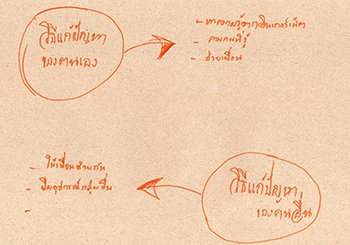 วิธีแก้ปัญหา
ของตนเอง
- หาความรู้จากอินเตอร์เน็ต
- ถามคนที่รู้
- ช่วยเพื่อน
- ให้เพื่อนช่วย
- ยืมอุปกรณ์กลุ่มอื่น
-
วิธีแก้ปัญหา
ของคนอื่น